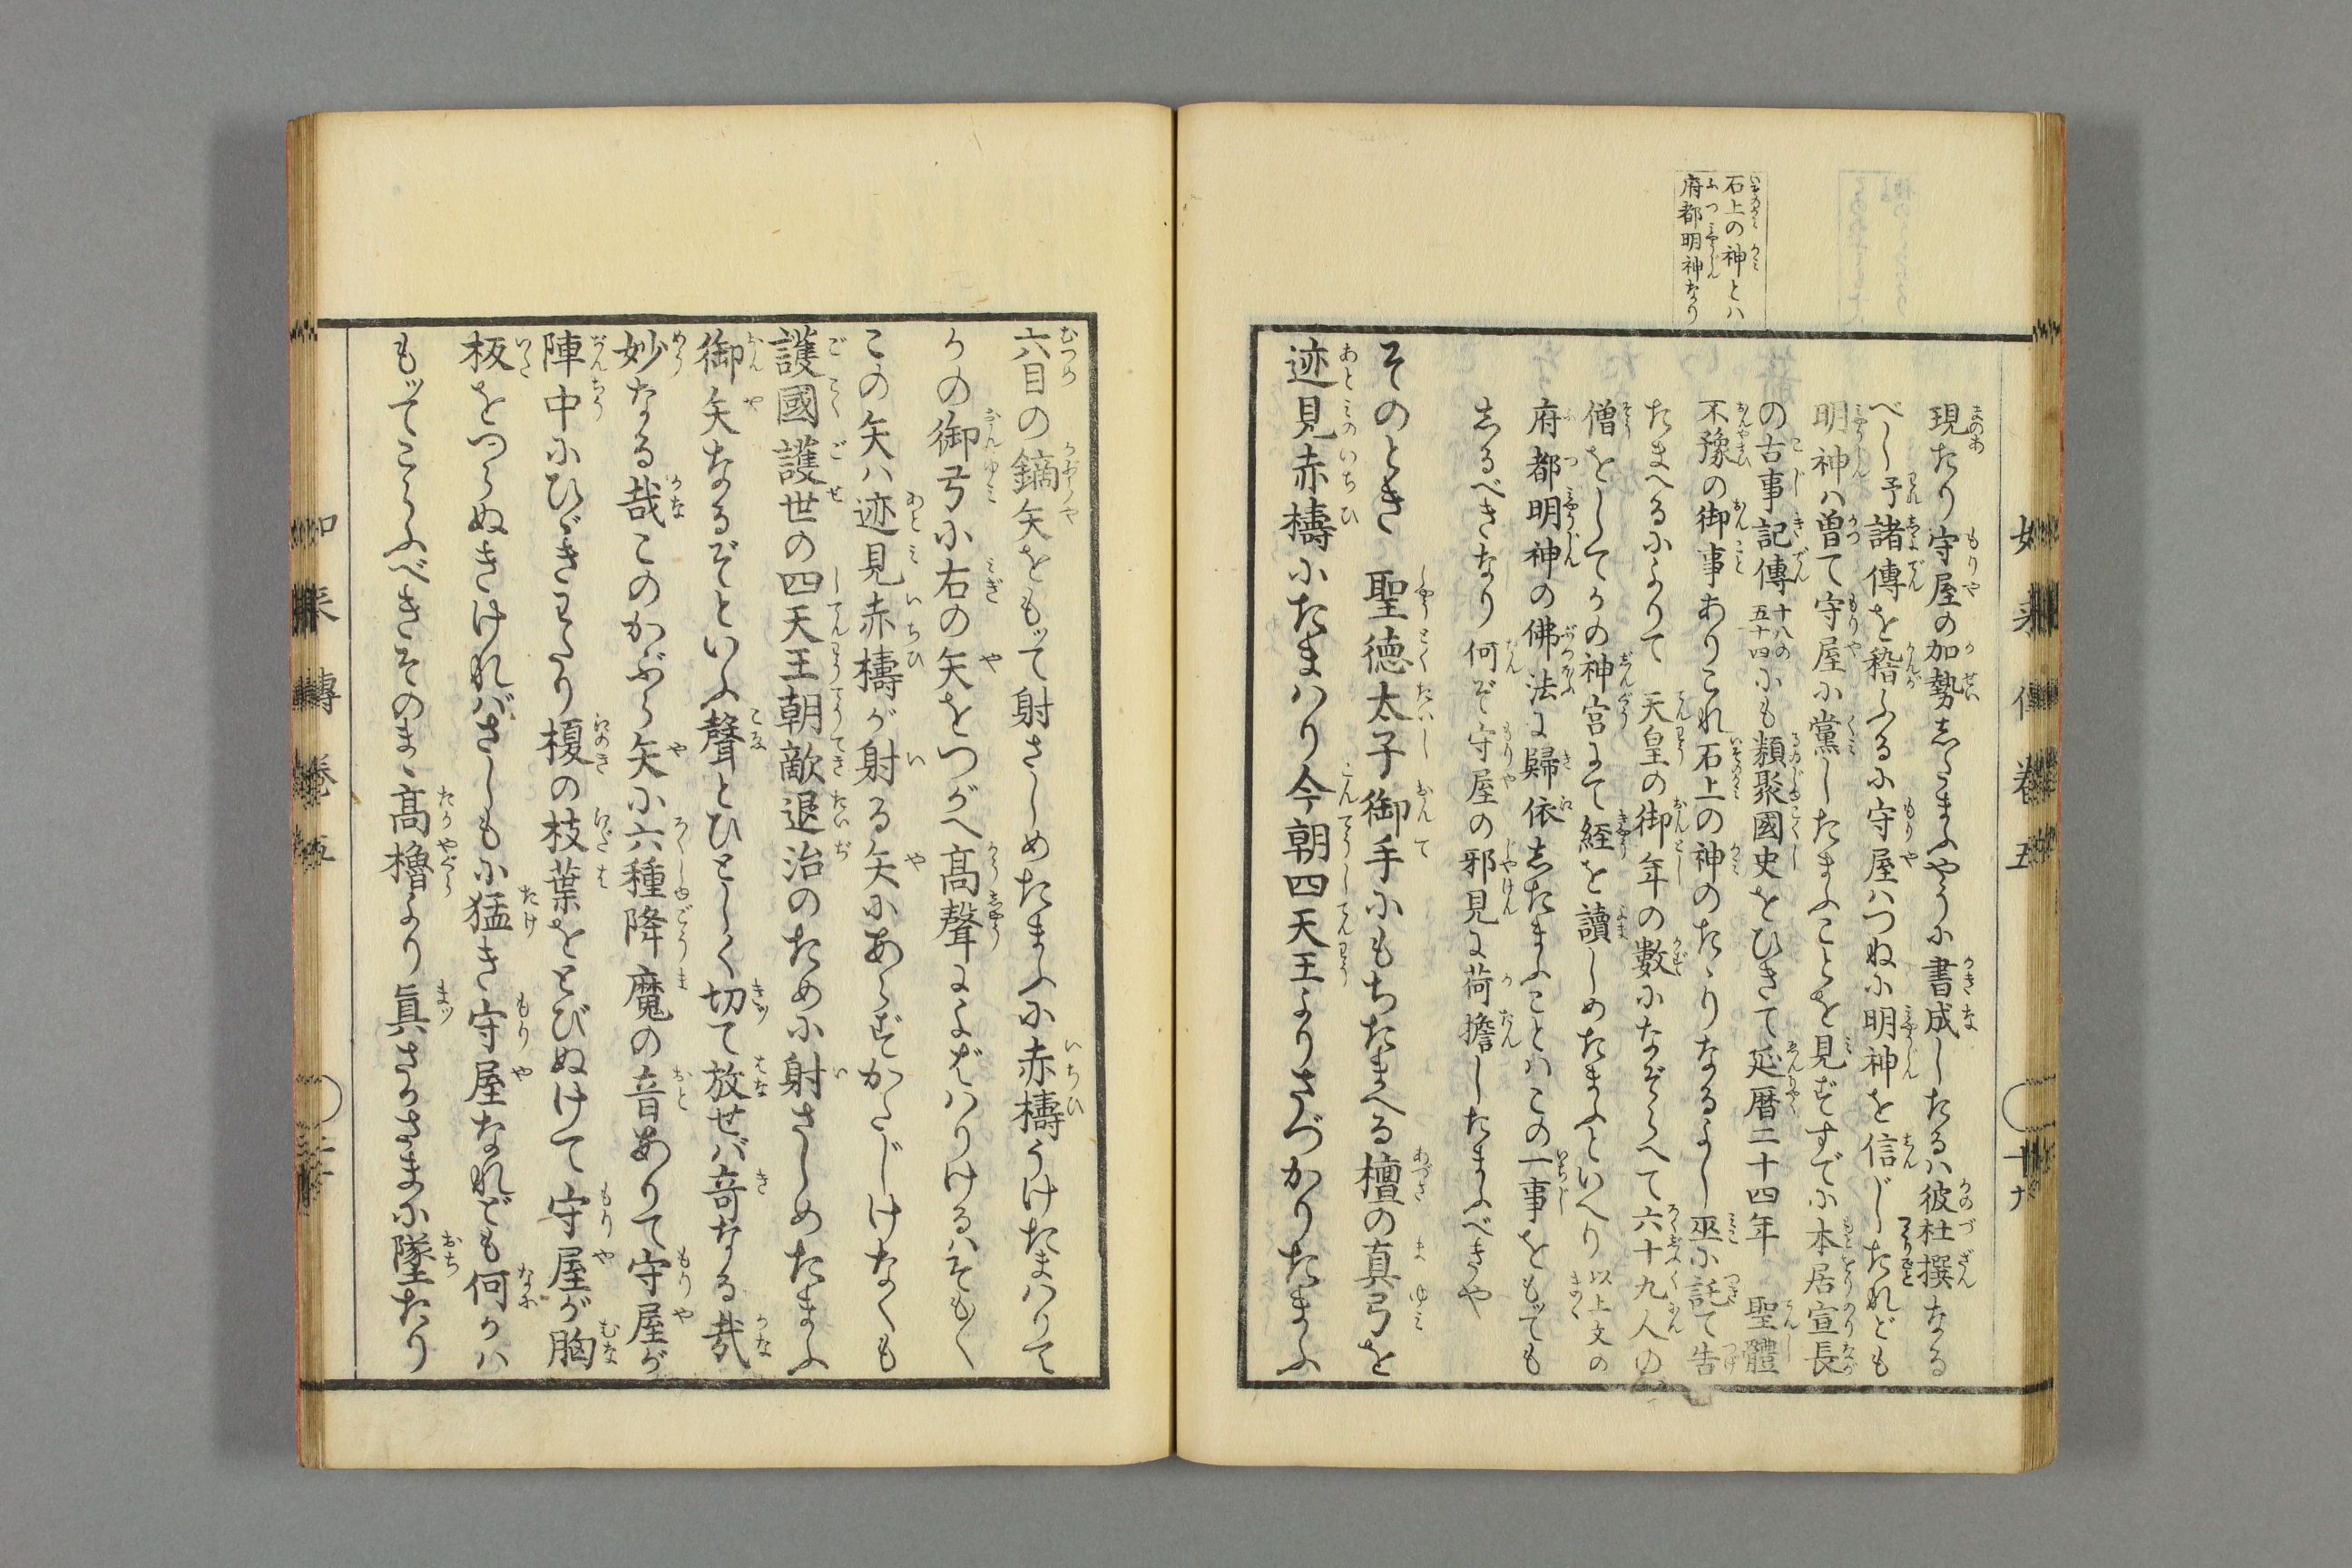 如来傳巻五
十九
石上の神とハ
府都明神なり
現たり守屋の加勢したまふやうに書成したるハ彼杜撰なる
べし予諸傳を稽ふるに守屋ハつねに明神を信じたれども
明神ハ曽て守屋に黨したまふことを見ずすでに本居宣長
の古事記傳十八の五十四にも類聚國史をひきて延暦二十四年聖體
不豫の御事ありこれ石上の神のたゝりなるよし巫に託て告
たまへるによりて天皇の御年の數になぞらへて六十九人の
僧をしてかの神宮にて經を讀しめたまふといへり以上文の
府都明神の佛法に歸依したまふことハこの一事をもッても
しるべきなり何ぞ守屋の邪見に荷擔したまふべきや
そのとき聖徳太子御手にもちたまへる檀の真弓を
迹見赤檮にたまハり今朝四天王よりさづかりたまふ
六目の鏑矢をもッて射さしめたまふに赤檮うけたまハりて
かの御弓に右の矢をつがへ髙聲によばハりけるハそも〱
この矢ハ迹見赤檮が射る矢にあらずかたじけなくも
護國護世の四天王朝敵退治のために射さしめたまふ
御矢なるぞといふ聲とひとしく切て放せバ竒なる哉
妙なる哉このかぶら矢に六種降魔の音ありて守屋が
陣中にひゞきわたり榎の枝葉をとびぬけて守屋が胸
板をつらぬきけれバさしもに猛き守屋なれども何かハ
もッてこらふべきそのまゝ髙櫓より眞さかさまに墜たり
如来傳巻五
二十